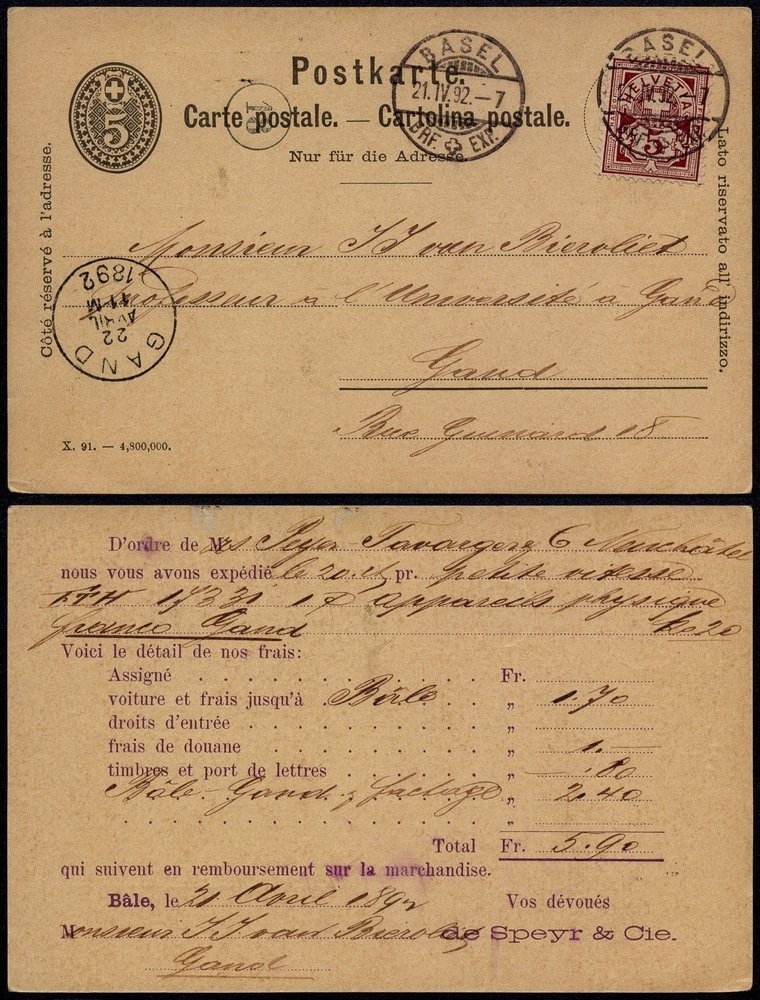 Postkarte.
Carte postale. — Cartolina postale.
Nur für die Adresse.
5
BASEL
21.IV.92.–7
BRF. EXP.
BASEL
IV.92. 7
BRF. EXP.
HELVETIA
5
Côté réservé à l'adresse.
Lato riservato all' indirizzo.
Monsieur J J van Biervliet
Professeur à l'Université à Gand
Gand
Rue Guinard 18
GAND
22
AVRIL
11-M
1892
X. 91. — 4,800,000.
D'ordre de Mrs Peyer Favarger & C Neuchâtel
nous vous avons expédié le 20 ct pr. petite vitesse
FFH 1733 1 appareils physique
franco Gand ko 20
Voici le détail de nos frais:
Assigné Fr.
voiture et frais jusqu'à Bâle „ 1.70
droits d'entrée „
frais de douane „ 1.—
timbres et port de lettres „ .80
Bâle-Gand & factage „ 2.40
„
Total Fr. 5.90
qui suivent en remboursement sur la marchandise.
Bâle, le 21 Avril 1892 Vos dévoués
Monsieur J J van Biervliet de Speyr & Cie.
Gand